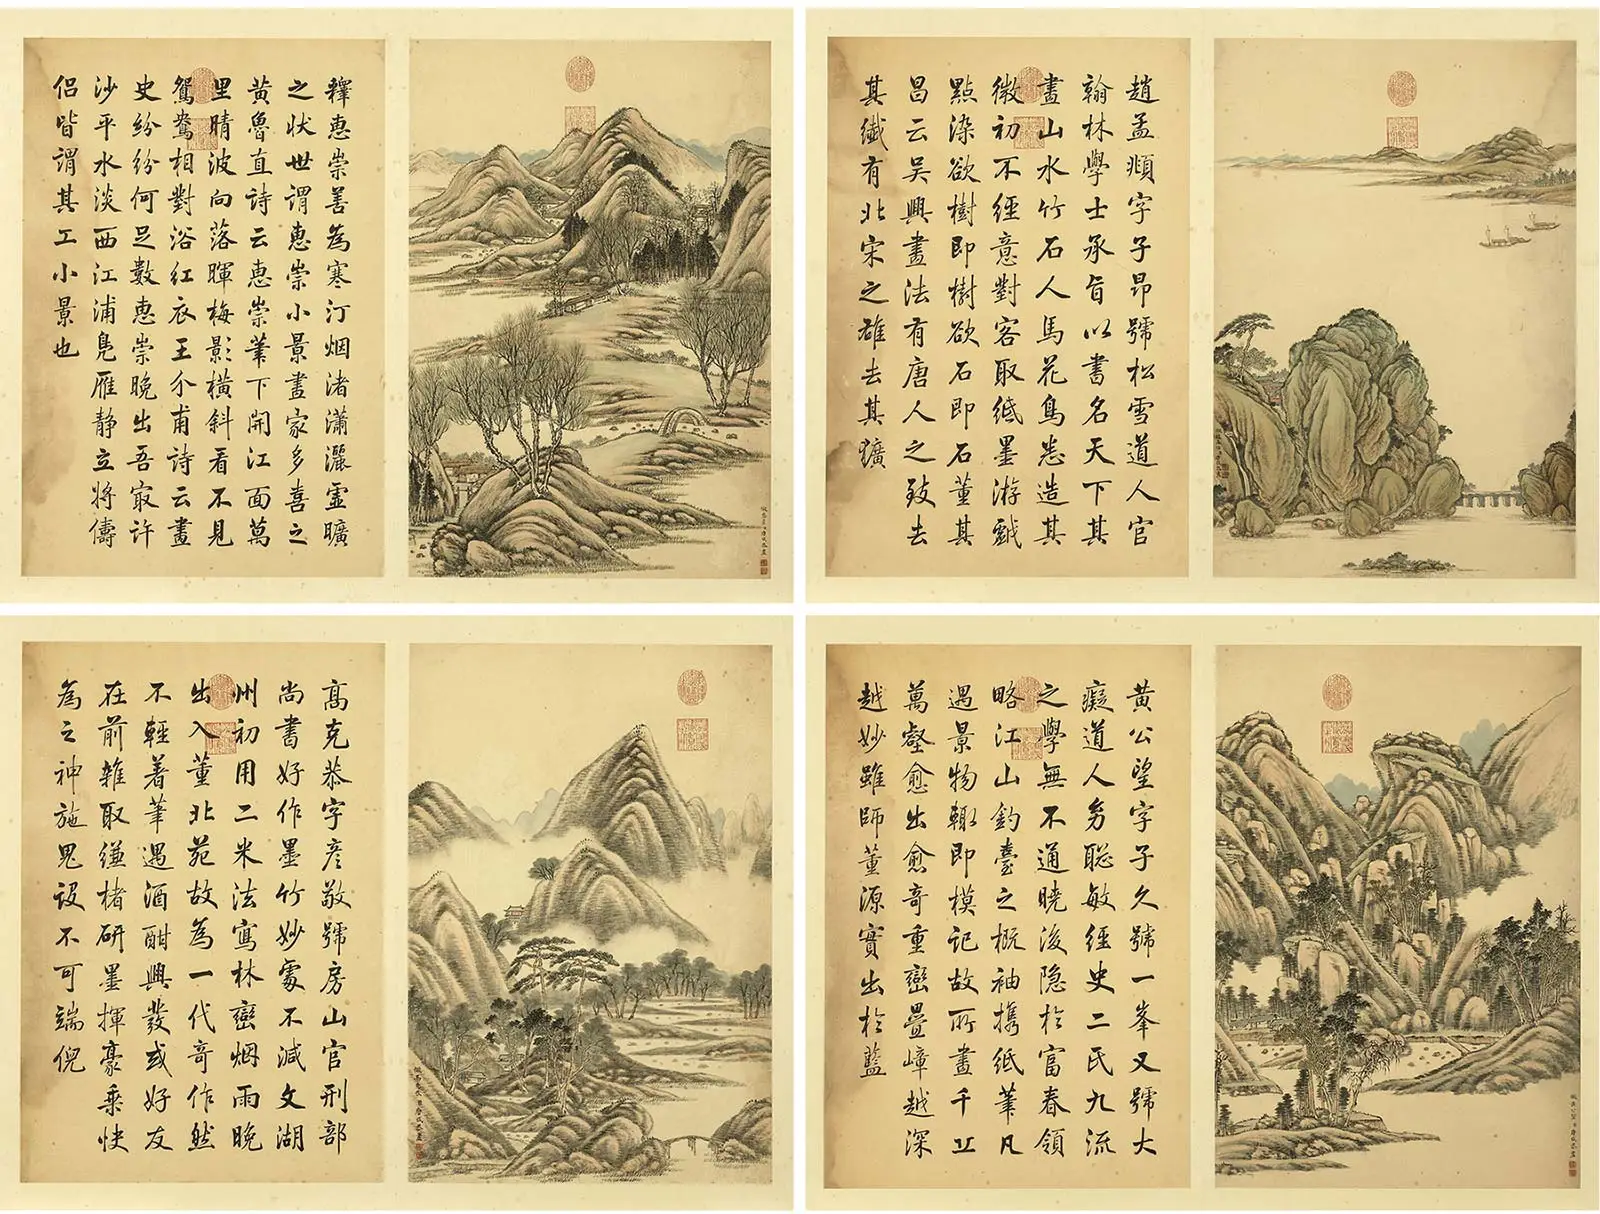 釋惠崇善為寒汀烟渚瀟灑虛曠
之狀世謂惠崇小景畫家多喜之
黃魯直詩云惠崇筆下開江面萬
里晴波向落暉梅影橫斜看不見
鴛鴦相對浴紅衣王介甫詩云畫
史紛紛何足數惠崇晚出吾最許
沙平水淡西江浦鳧雁静立將儔
侣皆謂其工小景也
趙孟頫字子昂號松雪道人官
翰林學士承旨以書名天下其
畫山水竹石人馬花鳥悉造其
微初不經意對客取紙墨游戲
點染欲樹即樹欲石即石董其
昌云吳興畫法有唐人之致去
其纖有北宋之雄去其獷
高克恭字彥敬號房山官刑部
尚書好作墨竹妙處不減文湖
州初用二米法寫林巒烟雨晚
出入董北苑故為一代奇作然
不輕著筆遇酒酣興發或好友
在前雜取縑楮研墨揮豪乘快
為之神施鬼設不可端倪
黃公望字子久號一峯又號大
癡道人穷聪敏經史二氏九流
之學無不通曉後隐於富春領
略江山釣臺之概袖携紙筆凡
遇景物輙即模記故所畫千丘
萬壑愈出愈奇重巒疊嶂越深
越妙雖師董源實出於藍